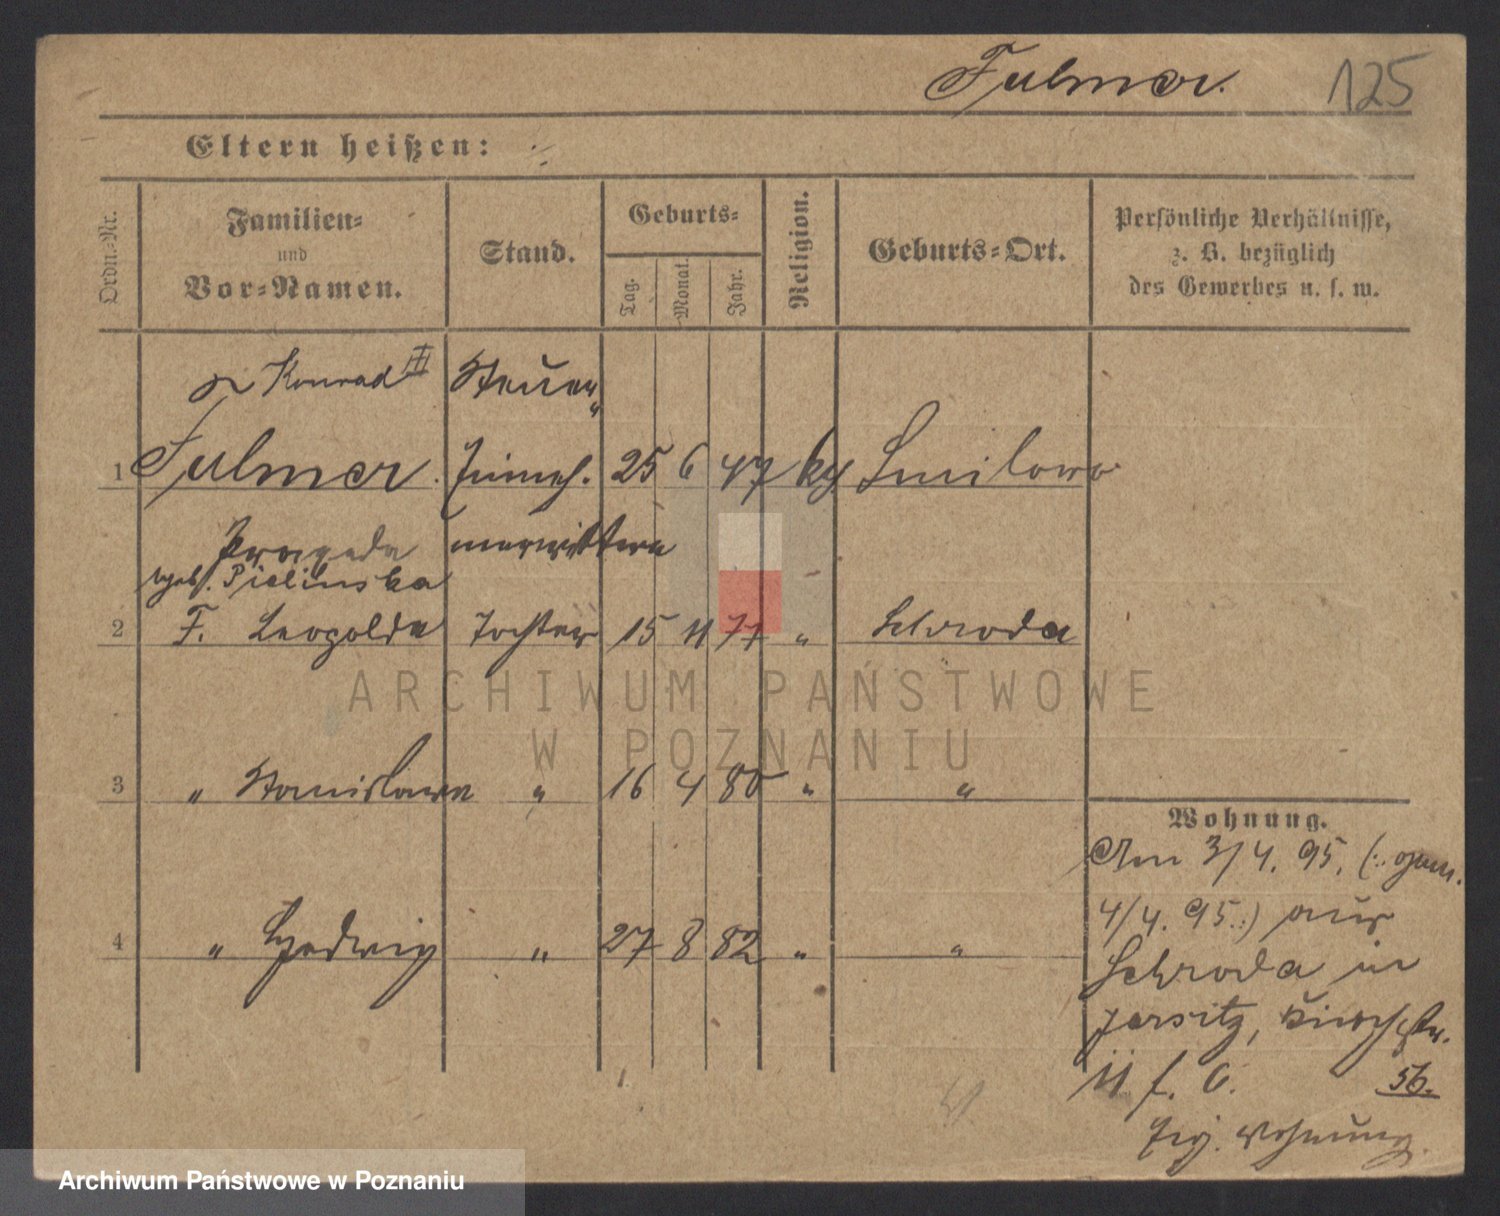 Fulmer.
125
Eltern heißen:
Ordn.-Nr.
Familien-
und
Vor-Namen.
Stand.
Geburts-
Tag.
Monat.
Jahr.
Religion.
Geburts-Ort.
Persönliche Verhältnisse,
z. B. bezüglich
des Gewerbes u. s. w.
Konrad III
1 Fulmer. 25 6 47 Smilowo
Praxeda
geb. Pielinska
2 F. Leopolda Tochter 15 11 77 " Schroda
3 " Stanislawa " 16 4 80 " "
4 " Hedwig " 27 8 82 " "
Wohnung.
Am 3/4. 95. (: gem.
4/4. 95.:) aus
Schroda in
Jersitz, Kirchstr.
11 f. 6. 56.
Eig. Wohnung.
ARCHIWUM PAŃSTWOWE
W POZNANIU
Archiwum Państwowe w Poznaniu